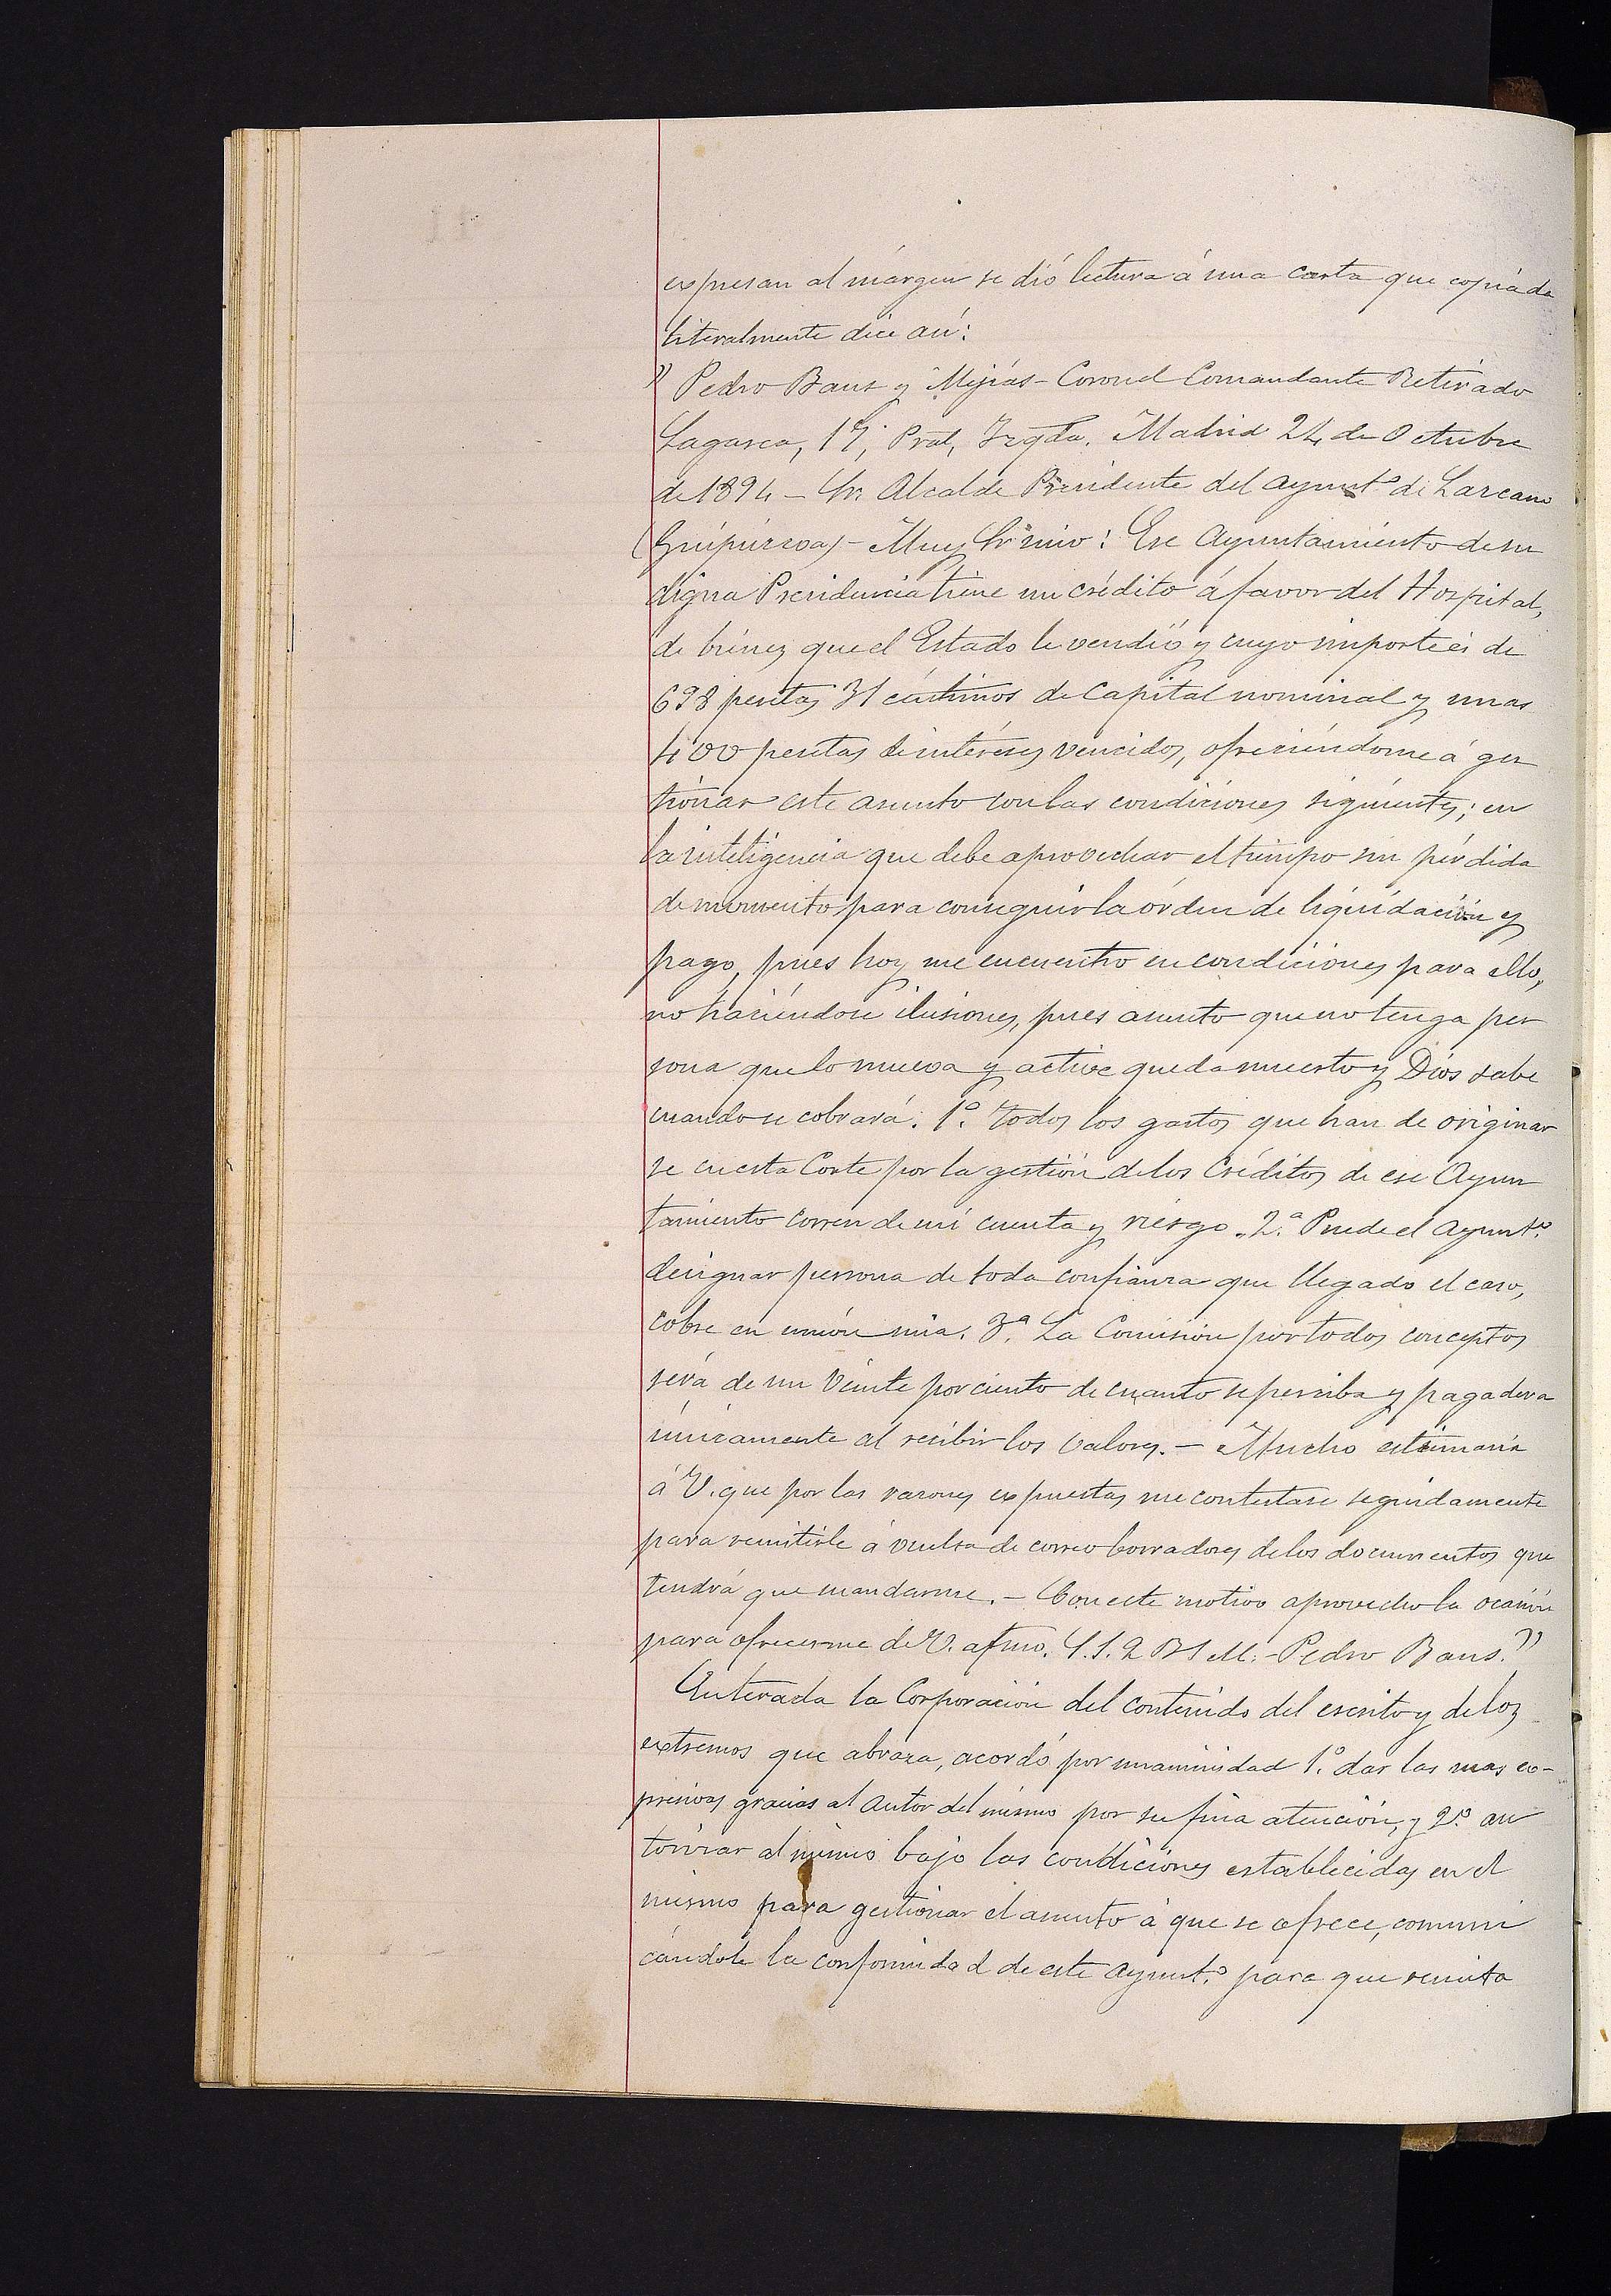 expresan al márgen se dió lectura á una carta que copiada
literalmente dice así:
" Pedro Baus y Mejías - Coronel Comandante Retirado
Lagasca, 17, Pral, Izqda. Madrid 24 de Octubre
de 1894 - Sr. Alcalde Presidente del Ayuntº de Lazcano
(Guipúzcoa) - Muy Sr mio: Ese Ayuntamiento de su
digna Presidencia tiene un crédito á favor del Hospital,
de bienes que el Estado le vendió y cuyo importe és de
698 pesetas 31 céntimos de Capital nominal y unas
400 pesetas de intéreses vencidos, ofreciéndome á ges
tionar este asunto con las condiciones siguientes; en
la inteligencia que debe aprovechar el tiempo sin pérdida
de momento para conseguir la órden de liquidación y
pago, pues hoy me encuentro en condiciones para ello,
no haciéndose ilusiones, pues asunto que no tenga per
sona que lo mueva y active queda muerto y Dios sabe
cuando se cobrará. 1º. Todos los gastos que han de originar
se en esta Corte por la gestión de los Créditos de ese Ayun
tamiento corren de mi cuenta y riesgo. 2.ª Puede el Ayuntº.
designar persona de toda confianza que llegado el caso,
cobre en unión mia. 3.ª La Comisión por todos conceptos
será de un Veinte por ciento de cuanto se perciba y pagadera
únicamente al recibir los valores. - Mucho estimaria
á V. que por las razones expuestas me contestase seguidamente
para remitirle á vuelta de correo borradores de los documentos que
tendrá que mandarme. - Con este motivo aprovecho la ocasión
para ofrecerme de V. afmo. S.S. Q B S M. - Pedro Baus."
Enterada la Corporación del contenido del escrito y de los
extremos que abraza, acordó por unanimidad 1º. dar las mas ex-
presivas gracias al autor del mismo por su fina atención, y 2º. au
torizar al mismo bajo las condiciones establecidas en el
mismo para gestionar el asunto á que se ofrece, comuni
cándole la conformidad de este Ayuntº. para que remita